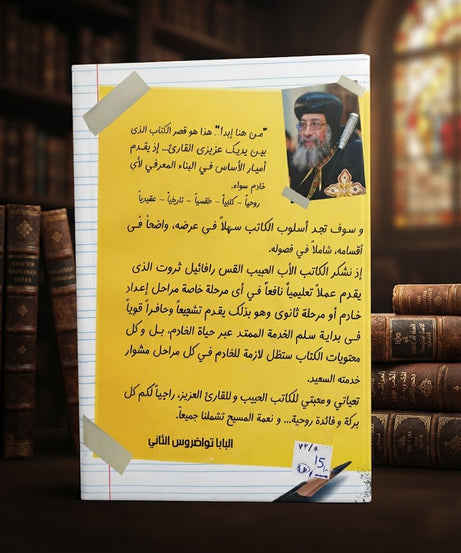 "من هنا إبدأ". هذا هو قصر الكتاب الذى
بين يديك عزيزى القارئ... إذ يقدم
أعيار الأساس في البناء المعرفي لأي
خادم سواء.
روحياً – كتابياً – طقسياً – تاريخياً – عقيدياً
و سوف تجد أسلوب الكاتب سهلاً فى عرضه، واضحاً فى
أقسامه، شاملاً في فصوله.
إذ نشكر الكاتب الأب الحبيب القس رافائيل ثروت الذى
يقدم عملاً تعليمياً نافعاً في أى مرحلة خاصة مراحل إعداد
خادم أو مرحلة ثانوى وهو بذلك يقدم تشجيعاً وحافزاً قوياً
فى بداية سلم الخدمة الممتد عبر حياة الخادم، بل وكل
محتويات الكتاب ستظل لازمة للخادم في كل مراحل مشوار
خدمته السعيد.
تحياتي ومحبتي للكاتب الحبيب وللقارئ العزيز، راجياً لكم كل
بركة و فائدة روحية... و نعمة المسيح تشملنا جميعاً.
البابا تواضروس الثاني
٧٣/٥
15